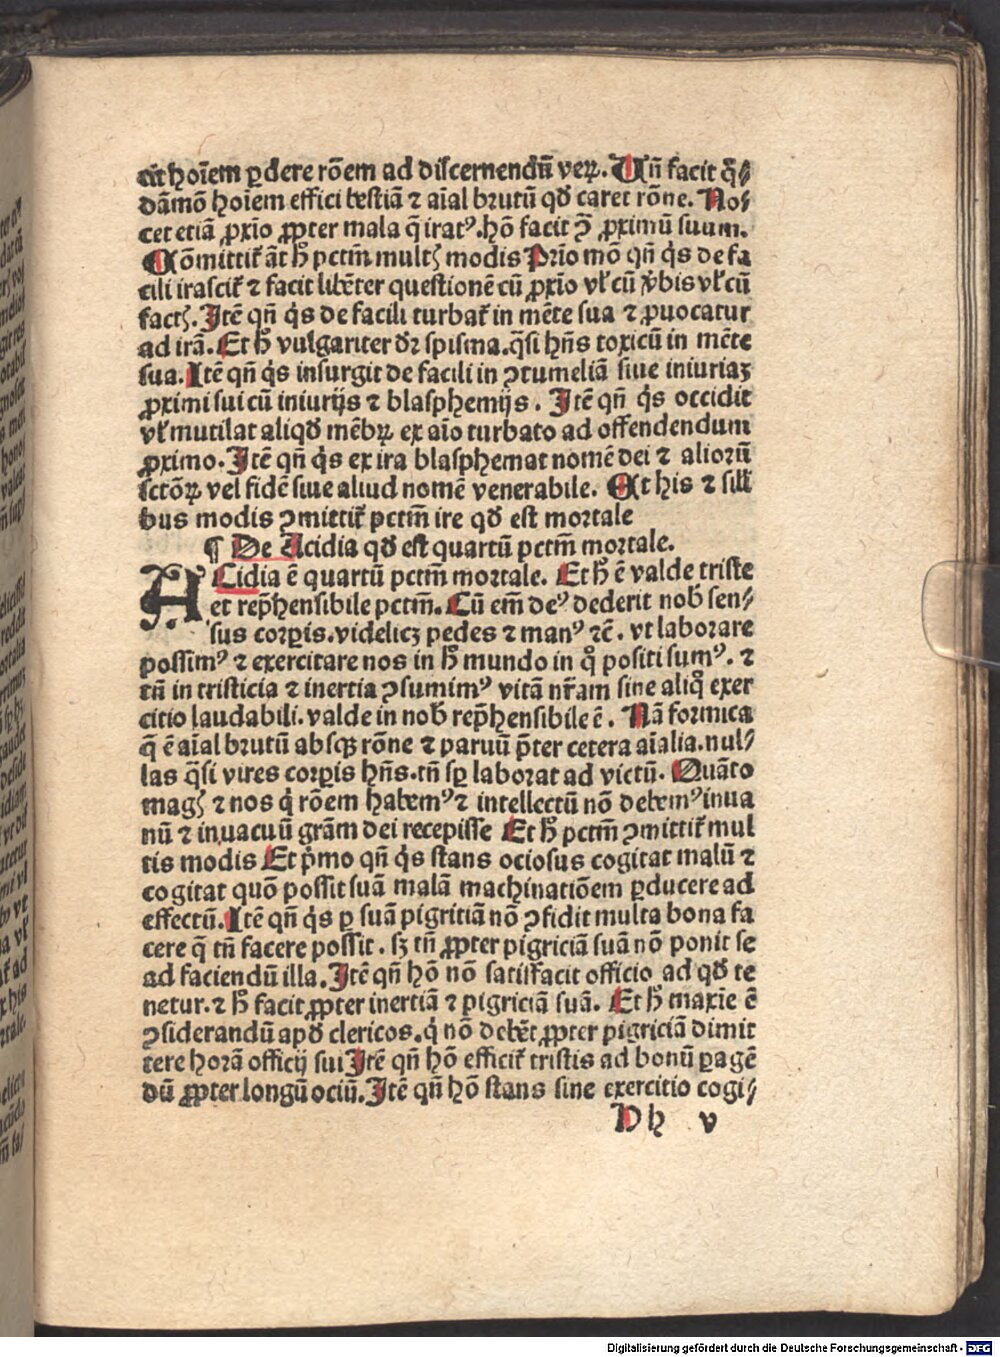 cit hoīem ꝑdere rōem ad discernendū veꝝ. Vñ facit q̄⸗
dāmō hoīem effici bestiā ⁊ aīal brutū qđ caret rōne. No⸗
cet etiā ꝓxīo ꝓpter mala q̄ iratꝰ. hō facit ꝯ ꝓximū suum.
Cōmittit̄ āt h̄ pctm̄ multꝭ modis Prīo mō qn̄ q̇s de fa
cili irascit̄ ⁊ facit libēter questionē cū ꝓxīo vl̄ cū v̄bis vl̄ cū
factꝭ. Itē qn̄ q̇s de facili turbat̄ in mēte sua ⁊ ꝓuocatur
ad irā. Et h̄ vulgariter dr̄ spisma. q̄si hn̄s toxicū in mēte
sua. Itē qn̄ q̇s insurgit de facili in ꝯtumeliā siue iniuriaꝫ
ꝓximi sui cū iniurijs ⁊ blasphemijs. Itē qn̄ q̇s occidit
vl̄ mutilat aliqđ mēbꝝ ex aīo turbato ad offendendum
ꝓximo. Itē qn̄ q̇s ex ira blasphemat nomē dei ⁊ aliorū
sctōꝝ vel fidē siue aliud nomē venerabile. Et his ⁊ sill̄
bus modis ꝯmittit̄ pctm̄ ire qđ est mortale
¶ De Acidia qđ est quartū pctm̄ mortale.
ACidia ē quartū pctm̄ mortale. Et h̄ ē valde triste
et rep̄hensibile pctm̄. Cū em̄ deꝰ dederit nob̄ sen⸗
sus corꝑis. videlicꝫ pedes ⁊ manꝰ ⁊c̄. vt laborare
possimꝰ ⁊ exercitare nos in h̄ mundo in q̊ positi sumꝰ. ⁊
tn̄ in tristicia ⁊ inertia ꝯsumimꝰ vitā nr̄am sine aliq̊ exer
citio laudabili. valde in nob̄ rep̄hensibile ē. Nā formica
q̄ ē aīal brutū absqꝫ rōne ⁊ paruū p̄ter cetera aīalia. nul⸗
las q̄si vires corꝑis hn̄s. tn̄ sꝑ laborat ad victū. Quāto
magꝭ ⁊ nos q̇ rōem habemꝰ ⁊ intellectū nō debemꝰ inua
nū ⁊ in vacuū gr̄am dei recepisse Et h̄ pctm̄ ꝯmittit̄ mul
tis modis Et p̄mo qn̄ q̇s stans ociosus cogitat malū ⁊
cogitat quō possit suā malā machinatiōem ꝑducere ad
effectū. Itē qn̄ q̇s ꝑ suā pigritiā nō ꝯfidit multa bona fa
cere q̄ tn̄ facere possit. sꝫ tn̄ ꝓpter pigriciā suā nō ponit se
ad faciendū illa. Itē qn̄ hō nō satisfacit officio ad qđ te
netur. ⁊ h̄ facit ꝓpter inertiā ⁊ pigriciā suā. Et h̄ maxīe ē
ꝯsiderandū apđ clericos. q̇ nō debēt ꝓpter pigriciā dimit
tere horā officij sui Itē qn̄ hō efficit̄ tristis ad bonū ꝑagē
dū ꝓpter longū ociū. Itē qn̄ hō stans sine exercitio cogi⸗
Dh v
Digitalisierung gefördert durch die Deutsche Forschungsgemeinschaft - DFG